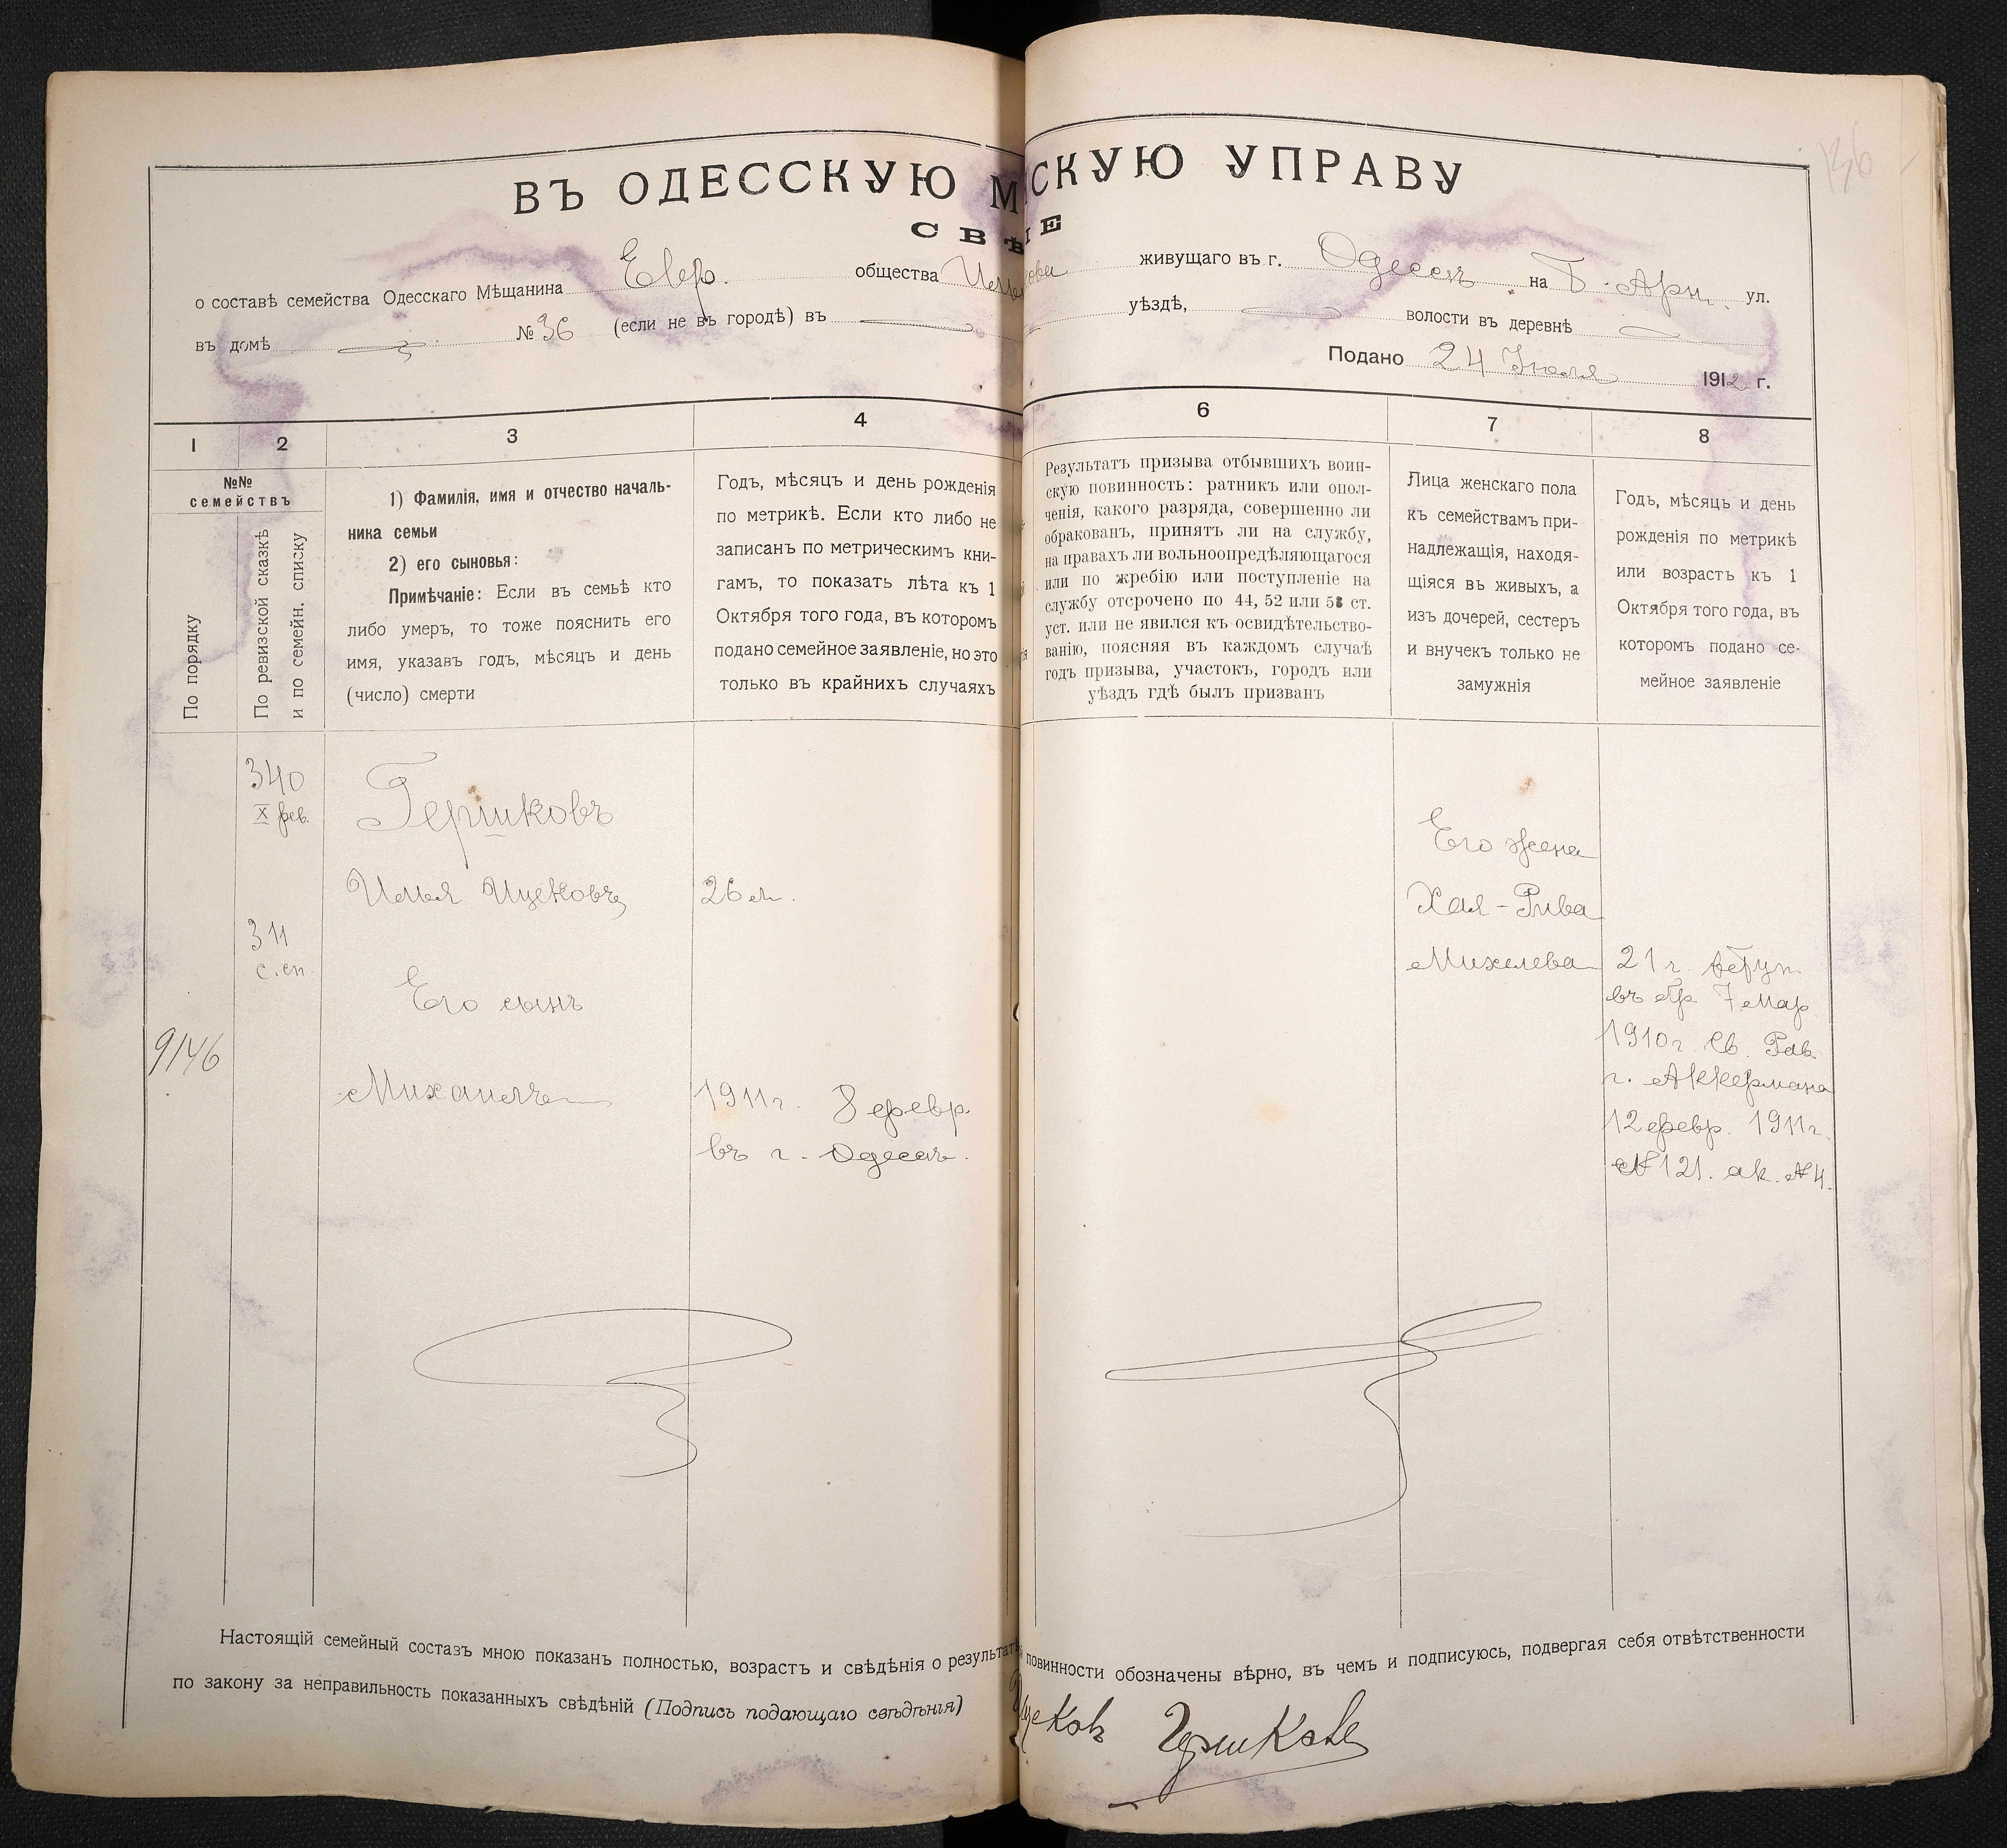 ВЪ ОДЕССКУЮ М СКУЮ УПРАВУ
СВѢ IЕ
о составѣ семейства Одесскаго Мѣщанина Евр. общества живущаго въ г. Одессѣ на Б. Арн. ул.
въ домѣ № 36 (если не въ городѣ) въ уѣздѣ, волости въ деревнѣ
Подано 24 Июля 1912 г.
1
2
3
4
№№
семействъ
По порядку
По ревизской сказкѣ
и по семейн. списку
1) Фамилія, имя и отчество началь-
ника семьи
2) его сыновья:
Примѣчаніе: Если въ семьѣ кто
либо умеръ, то тоже пояснить его
имя, указавъ годъ, мѣсяцъ и день
(число) смерти
Годъ, мѣсяцъ и день рожденія
по метрикѣ. Если кто либо не
записанъ по метрическимъ кни-
гамъ, то показать лѣта къ 1
Октября того года, въ которомъ
подано семейное заявленіе, но это
только въ крайнихъ случаяхъ
6
7
8
Результатъ призыва отбывшихъ воин-
скую повинность: ратникъ или опол-
ченія, какого разряда, совершенно ли
обракованъ, принятъ ли на службу,
на правахъ ли вольноопредѣляющагося
или по жребію или поступленіе на
службу отсрочено по 44, 52 или 53 ст.
уст. или не явился къ освидѣтельство-
ванію, поясняя въ каждомъ случаѣ
годъ призыва, участокъ, городъ или
уѣздъ гдѣ былъ призванъ
Лица женскаго пола
къ семействамъ при-
надлежащія, находя-
щіяся въ живыхъ, а
изъ дочерей, сестеръ
и внучекъ только не
замужнія
Годъ, мѣсяцъ и день
рожденія по метрикѣ
или возрастъ къ 1
Октября того года, въ
которомъ подано се-
мейное заявленіе
340
X рев.
Гершковъ
Илья Ицековъ 26 л.
311
с. сп.
Его сынъ
9146
Михаилъ 1911 г. 8 февр.
въ г. Одессѣ.
Его жена
Хая-Рива
Михелева 21 г. вступ.
въ бр. 7 мар.
1910 г. св. Рав.
г. Аккермана
12 февр. 1911 г.
№ 121. ак. № 4.
Настоящій семейный составъ мною показанъ полностью, возрастъ и свѣдѣнія о результат повинности обозначены вѣрно, въ чемъ и подписуюсь, подвергая себя отвѣтственности
по закону за неправильность показанныхъ свѣдѣній (Подпись подающаго свѣдѣнія) Ицековъ Гершковъ